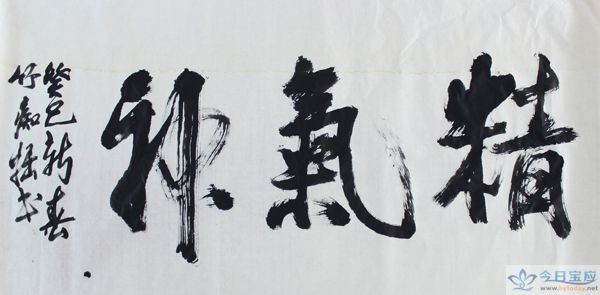 精氣神
癸巳新春
竹痴
今日宝应
www.bytoday.net